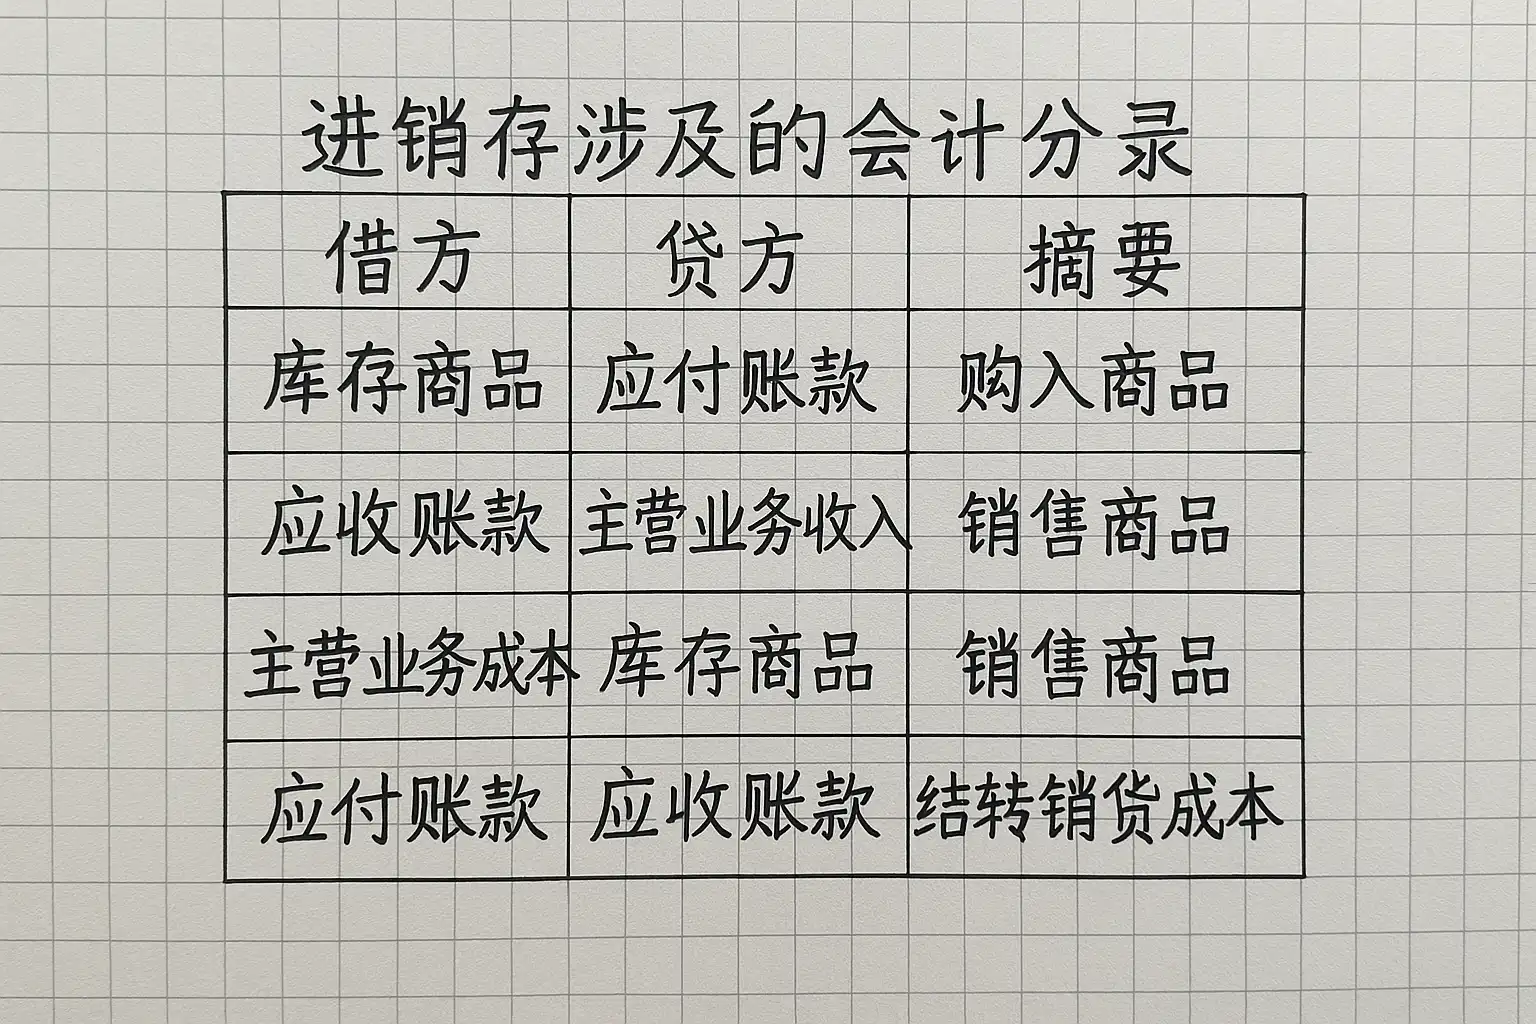 进销存涉及的会计分录
借方 贷方 摘要
库存商品 应付账款 购入商品
应收账款 主营业务收入 销售商品
主营业务成本 库存商品 销售商品
应付账款 应收账款 结转销货成本